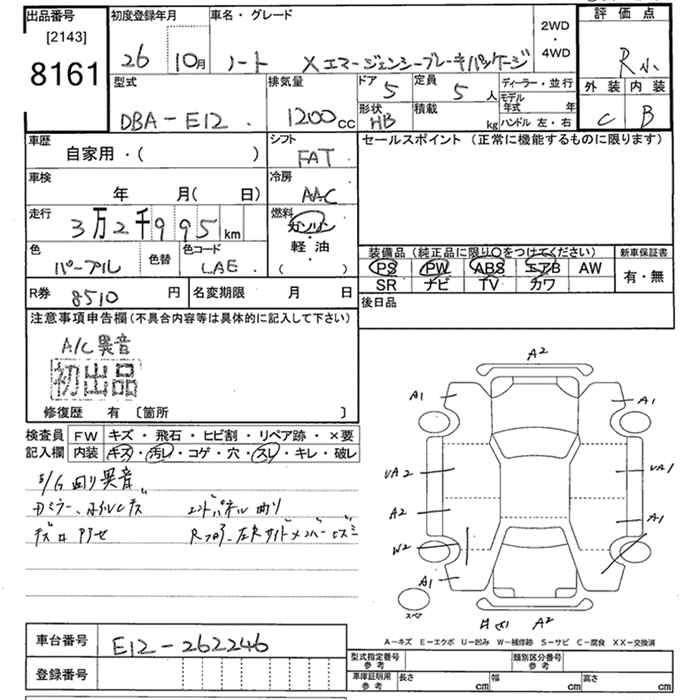 出品番号
[2143]
8161
初度登録年月
26 10月
車名・グレード
ノート Xエマージェンシーブレーキパッケージ
2WD
・
4WD
評価点
R
外装 内装
C B
型式
DBA-E12
排気量
1200cc
ドア 5
定員 5人
形状 HB
積載 kg
ディーラー・並行
モデル年式 年
ハンドル 左・右
車歴
自家用・( )
シフト
FAT
セールスポイント (正常に機能するものに限ります)
車検
年 月( 日)
冷房
AAC
走行
3万2千995km
燃料
ガソリン
・
軽・油
( )
色
パープル
色替
色コード
LAE
装備品(純正品に限り○をつけてください)
PS PW ABS エアB AW
SR ナビ TV カワ
新車保証書
有・無
R券 8510円
名変期限 月 日
後日品
注意事項申告欄(不具合内容等は具体的に記入して下さい)
A/C異音
初出品
修復歴 有 [箇所 ]
検査員記入欄
FW キズ・飛石・ヒビ割・リペア跡・×要
内装 キズ・汚レ・コゲ・穴・スレ・キレ・破レ
A2
A1 A1
UA2 UA1
A2 A1
W2
A1
スペア
A2
A-キズ E-エクボ U-凹み W-補修跡 S-サビ C-腐食 XX-交換済
車台番号 E12-262246
登録番号
型式指定番号 参考
類別区分番号 参考
車庫証明用 参考 長さ cm 幅 cm 高さ cm